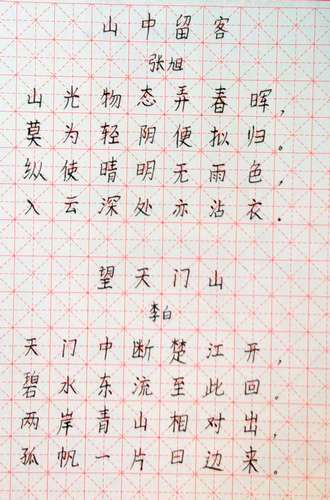 山中留客
张旭
山光物态弄春晖，
莫为轻阴便拟归。
纵使晴明无雨色，
入云深处亦沾衣。
望天门山
李白
天门中断楚江开，
碧水东流至此回。
两岸青山相对出，
孤帆一片日边来。